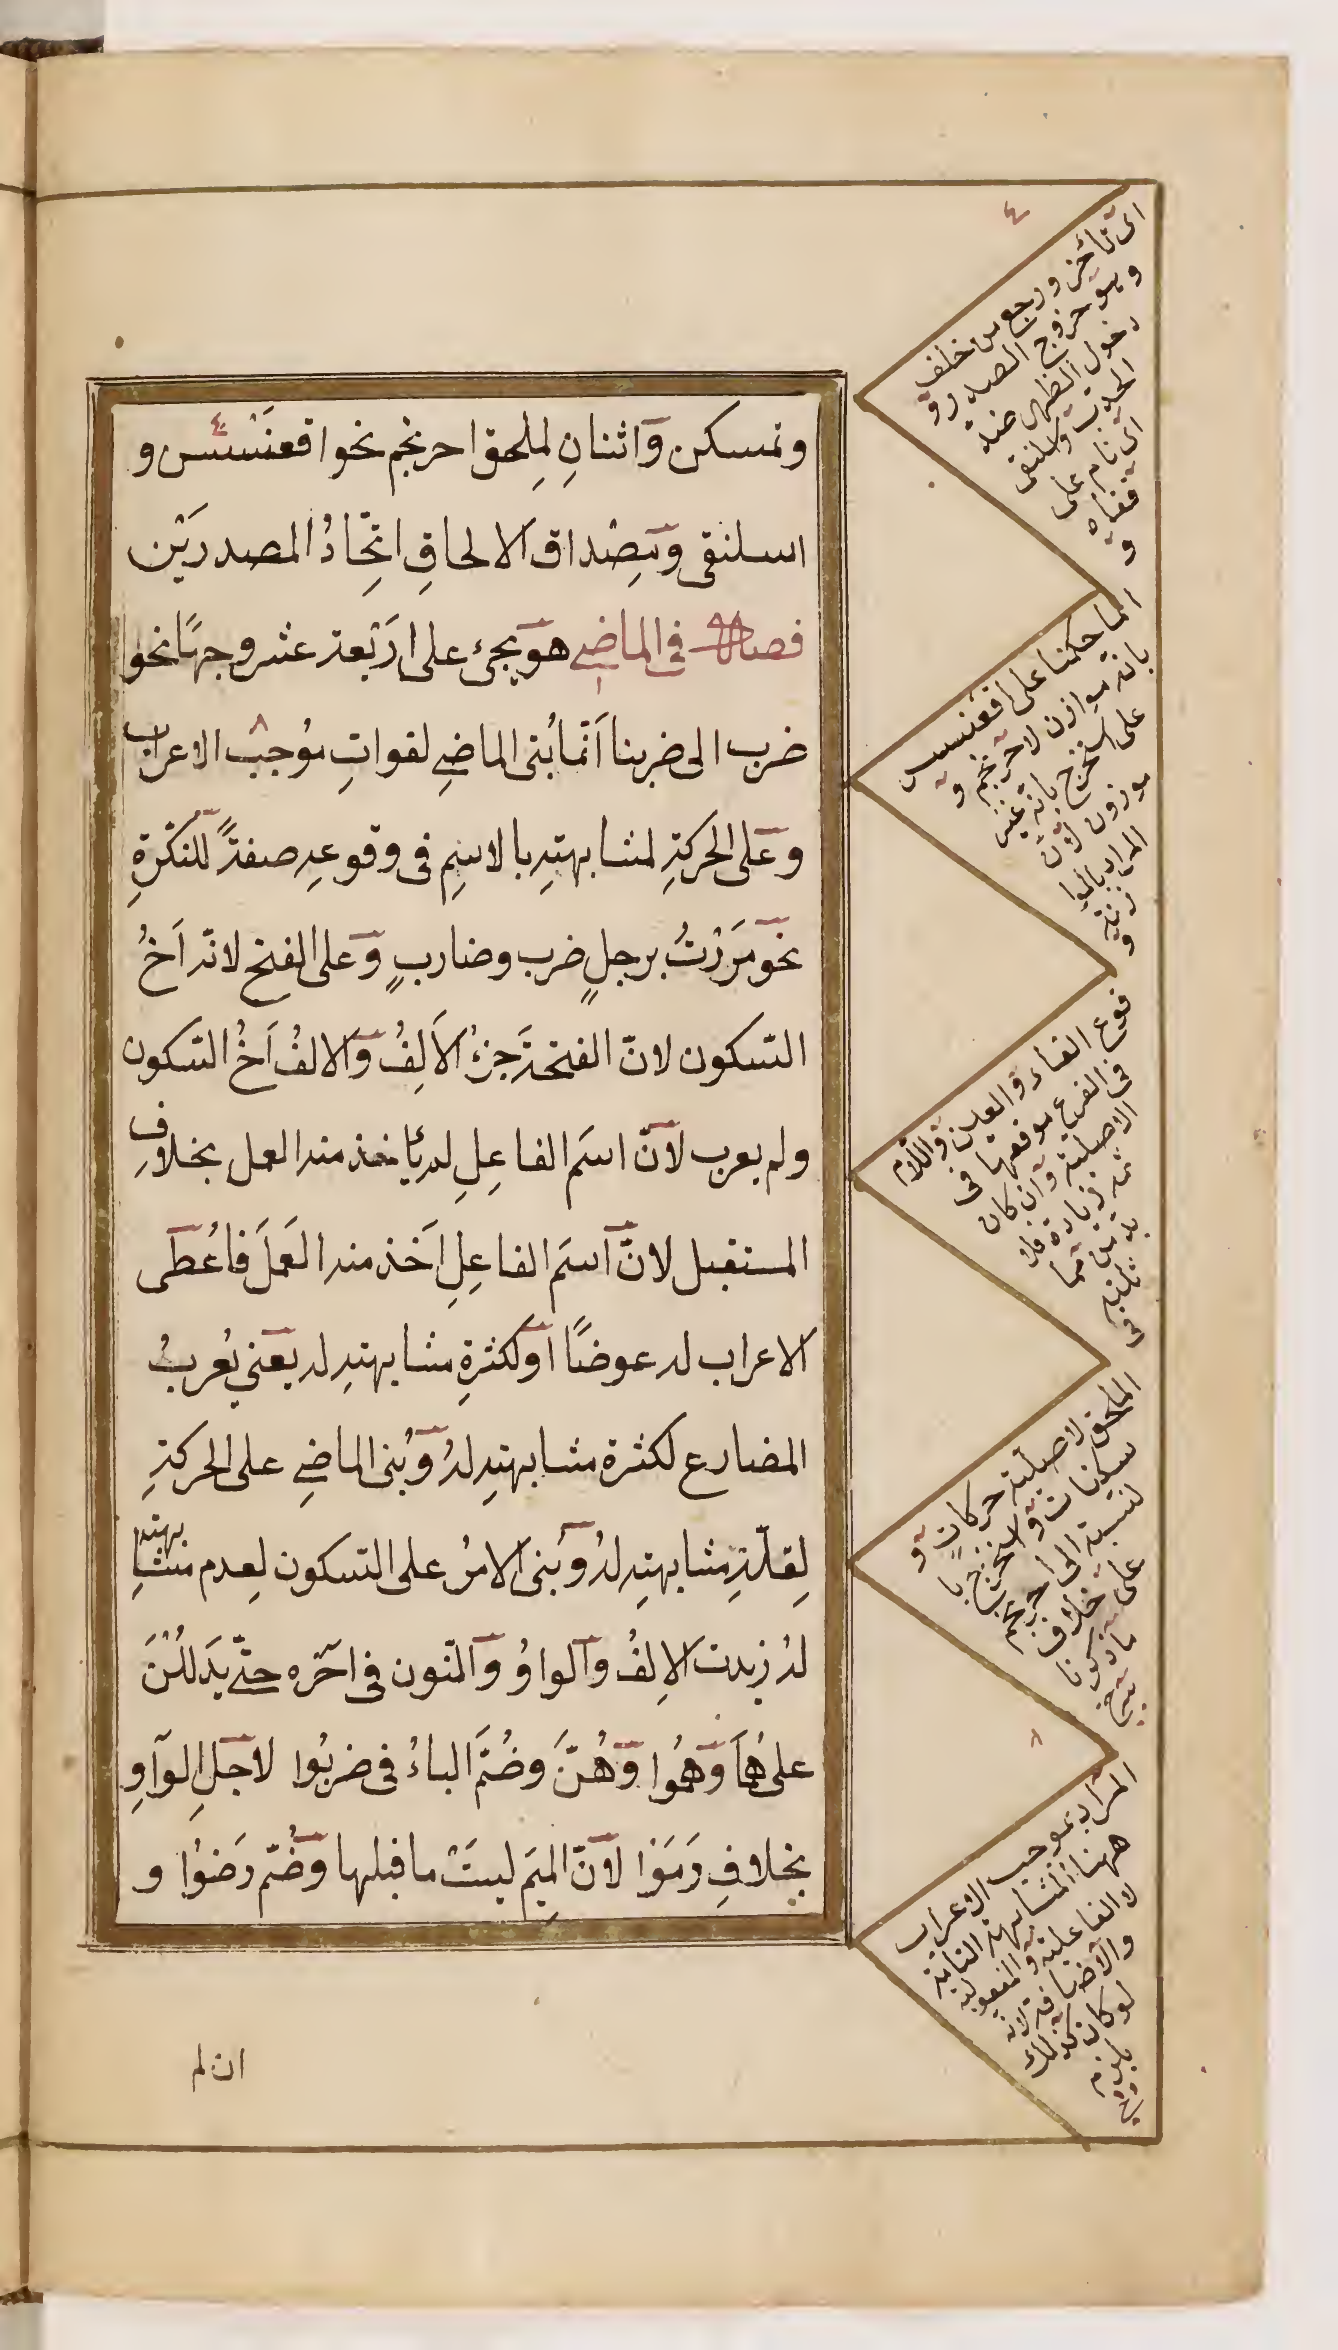 وتمسكن وَاثنانِ لِملحق احرنجم نحو اقعَنْسَسَ و
اسلنقى وَمِصْداق الالحاقِ اتّحَادُ المصدرَيْن
فصل فى الماضى هوَ يجئ على ارَبْعة عشر وجهًا نحو
ضرب الى ضربنا اَنّمَا بُنى الماضى لفواتِ مُوجب الاعراب
وعَلى الحركةِ لمشابهتهِ بالاسِم فى وقوعهِ صفةً للنكرةِ
نحوَ مَرَرْتُ برجلٍ ضرب وضاربٍ وَعلى الفتح لانه اَخُ
السّكون لانّ الفتحةَ جزءُ الاَلِفُ وَالالفُ اَخُ السّكون
ولم يعرب لاَنّ اسمَ الفاعِلِ لم يأخذ منه العمل بخلافِ
المستقبل لانّ اسمَ الفاعِلِ اَخذ منه العَمَلَ فاعُطَى
الاعراب له عوضًا اَو لكثرةِ مشابهتهِ له يعَنى يُعربُ
المضارع لكثرة مشابهتهِ لهُ وَبُنى الماضى على الحركةِ
لِقلّةِ مشابهتهِ لهُ وَبُنى الامرُ على السّكون لِعدم مشابهته
لهُ زيدت الاِلفُ وَالواوُ وَالنّون فى اخره حتّى يَدَلُلْنَ
على هُمَا وَهُمُوا وَهُنَّ وَضُمَّ الباءُ فى ضربُوا لاَجلِ الوَاوِ
بخلافِ رَمَوْا لاَنّ الميَم ليسَتْ ما قبلها وَضُمّ رَضُوا و
ان لم
٤
اى تأخّر ورجع من خلف
وهو خروج الصدر و
دخول الظهر ضدّ
الحدب والسلنقى
اى نام على
قفاه
و
انما حكمنا على اقعنسس
بانه موازن لاحرنجم و
على استخرج بانه غير
موزون لان
المراد بالموا
زنة و
قوع الفاء والعين واللام
فى الفرع موقعها فى
الاصلية وان كان
ثمه زيادة فلا
بد من مما
ثلته
فى
الملحق لاصلية حركاتٍ و
سكنات واستخرج با
لنسبة الى احرنجم
على خلاف
ما ذكرنا
٨
المراد بموجب الاعراب
ههنا المشابهة التامة
لا الفاعلية والمفعولية
والاضافة لانه
لو كان كذلك
يلزم